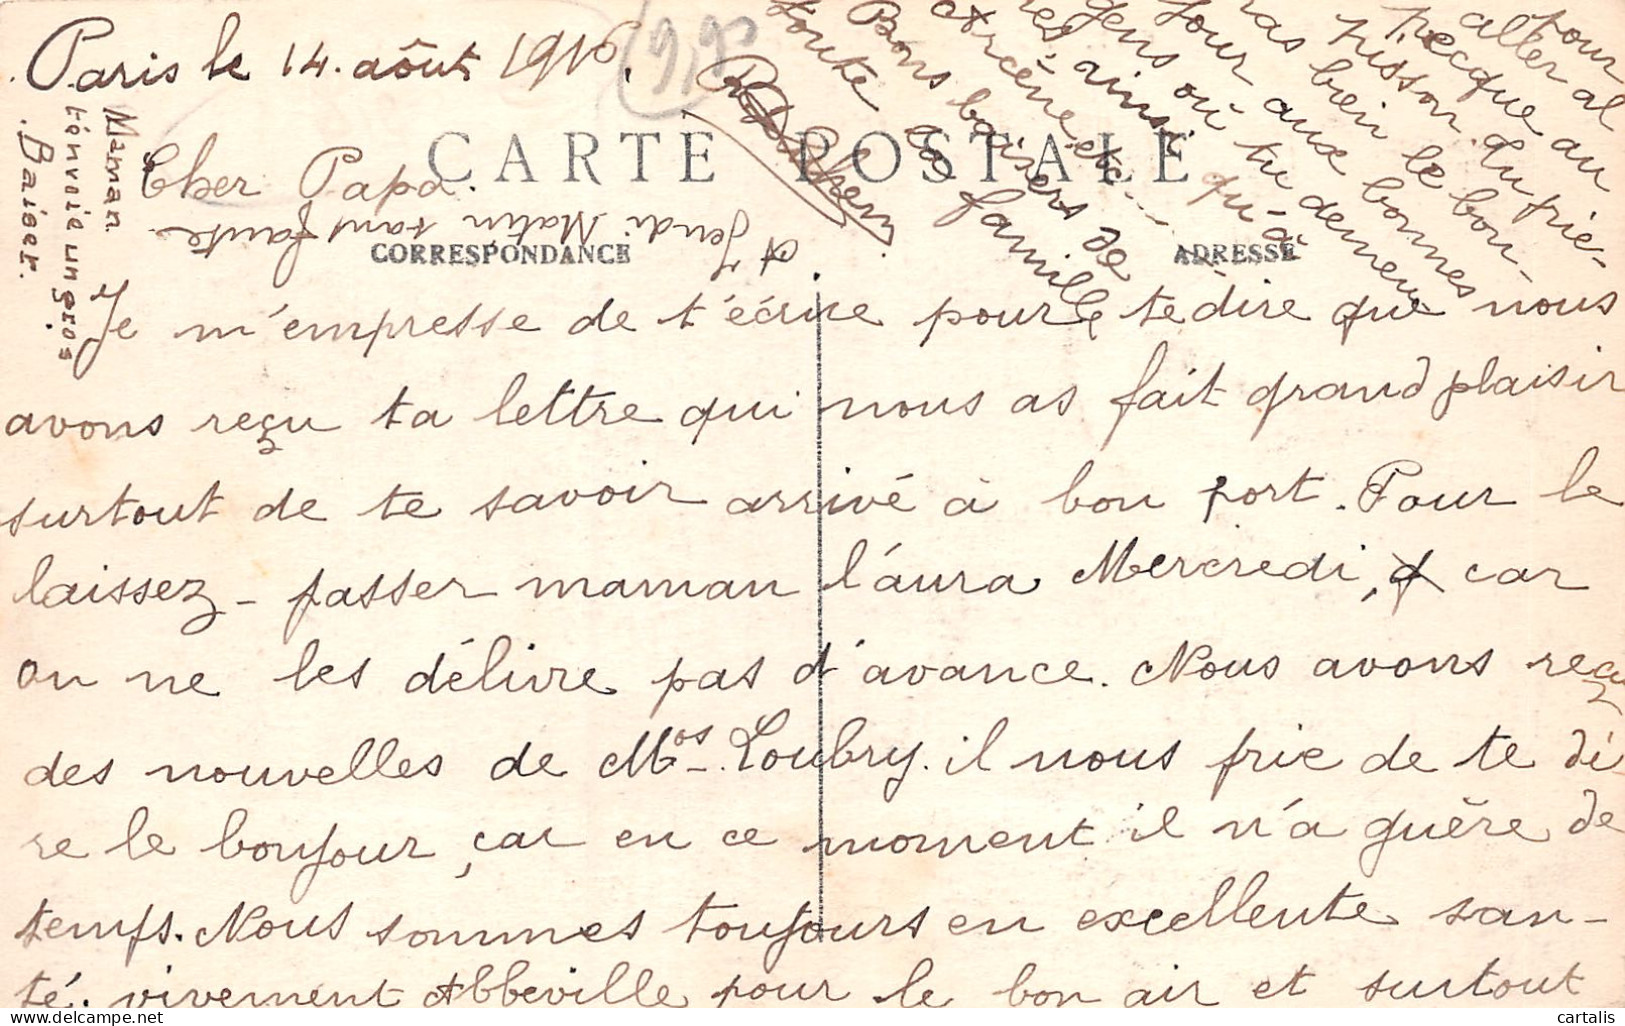 Paris le 14 août 1916.
CARTE POSTALE
CORRESPONDANCE
ADRESSE
Cher Papa.
Je m'empresse de t'écrire pour te dire que nous
avons reçu ta lettre qui nous as fait grand plaisir
surtout de te savoir arrivé à bon port. Pour le
laissez-passer maman l'aura Mercredi, car
on ne les délivre pas d'avance. Nous avons reçu
des nouvelles de Mos. Loubry. il nous prie de te di-
re le bonjour, car en ce moment il n'a guère de
temps. Nous sommes toujours en excellente san-
té. vivement Abbeville pour le bon air et surtout
pour
aller al
pecque au
hisson. Tu prie-
ras bien le bon-
jour aux bonnes
gens où tu demeure
ainsi qu'à
Arcène et
Bons baisers de
toute la famille
A Jeudi Matin sans faute.
Maman
t'envoie un gros
Baiser.
cartalis
delcampe.net